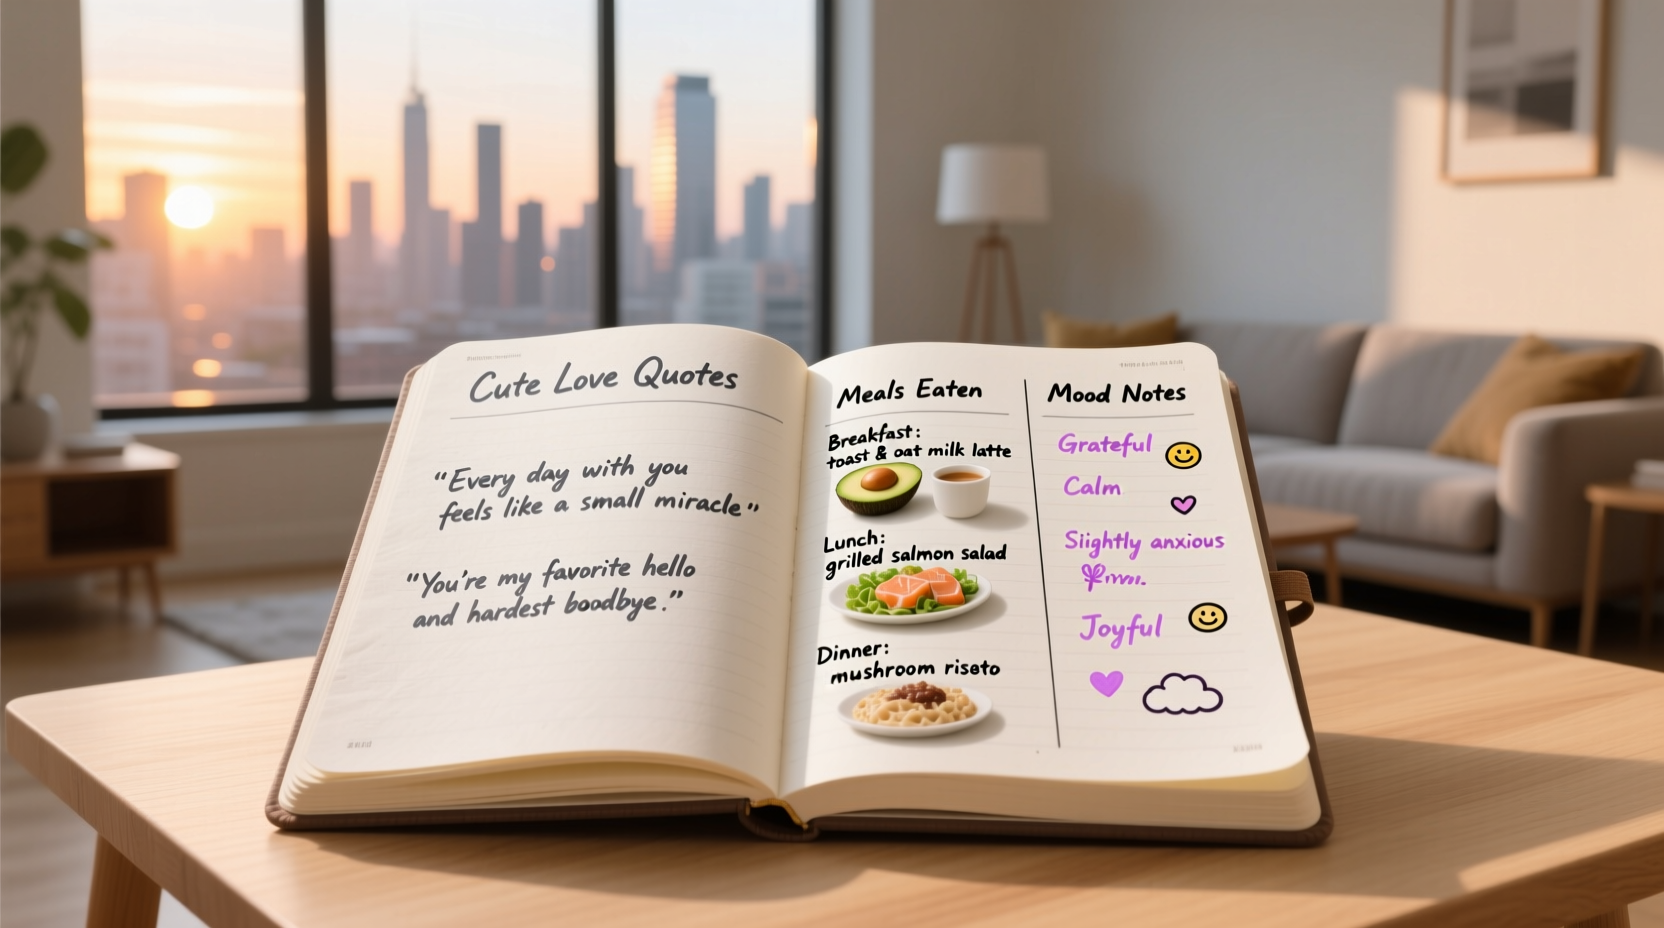 Cute Love Quotes
"Every day with you
feels like a small miracle"
"You're my favorite hello
and hardest boodbye."
Meals Eaten
Breakfast:
toast & oat milk latte
Lunch:
grilled salmon salad
Dinner:
mushroom riseto
Mood Notes
Grateful
Calm
Siightly anxious
Joyful